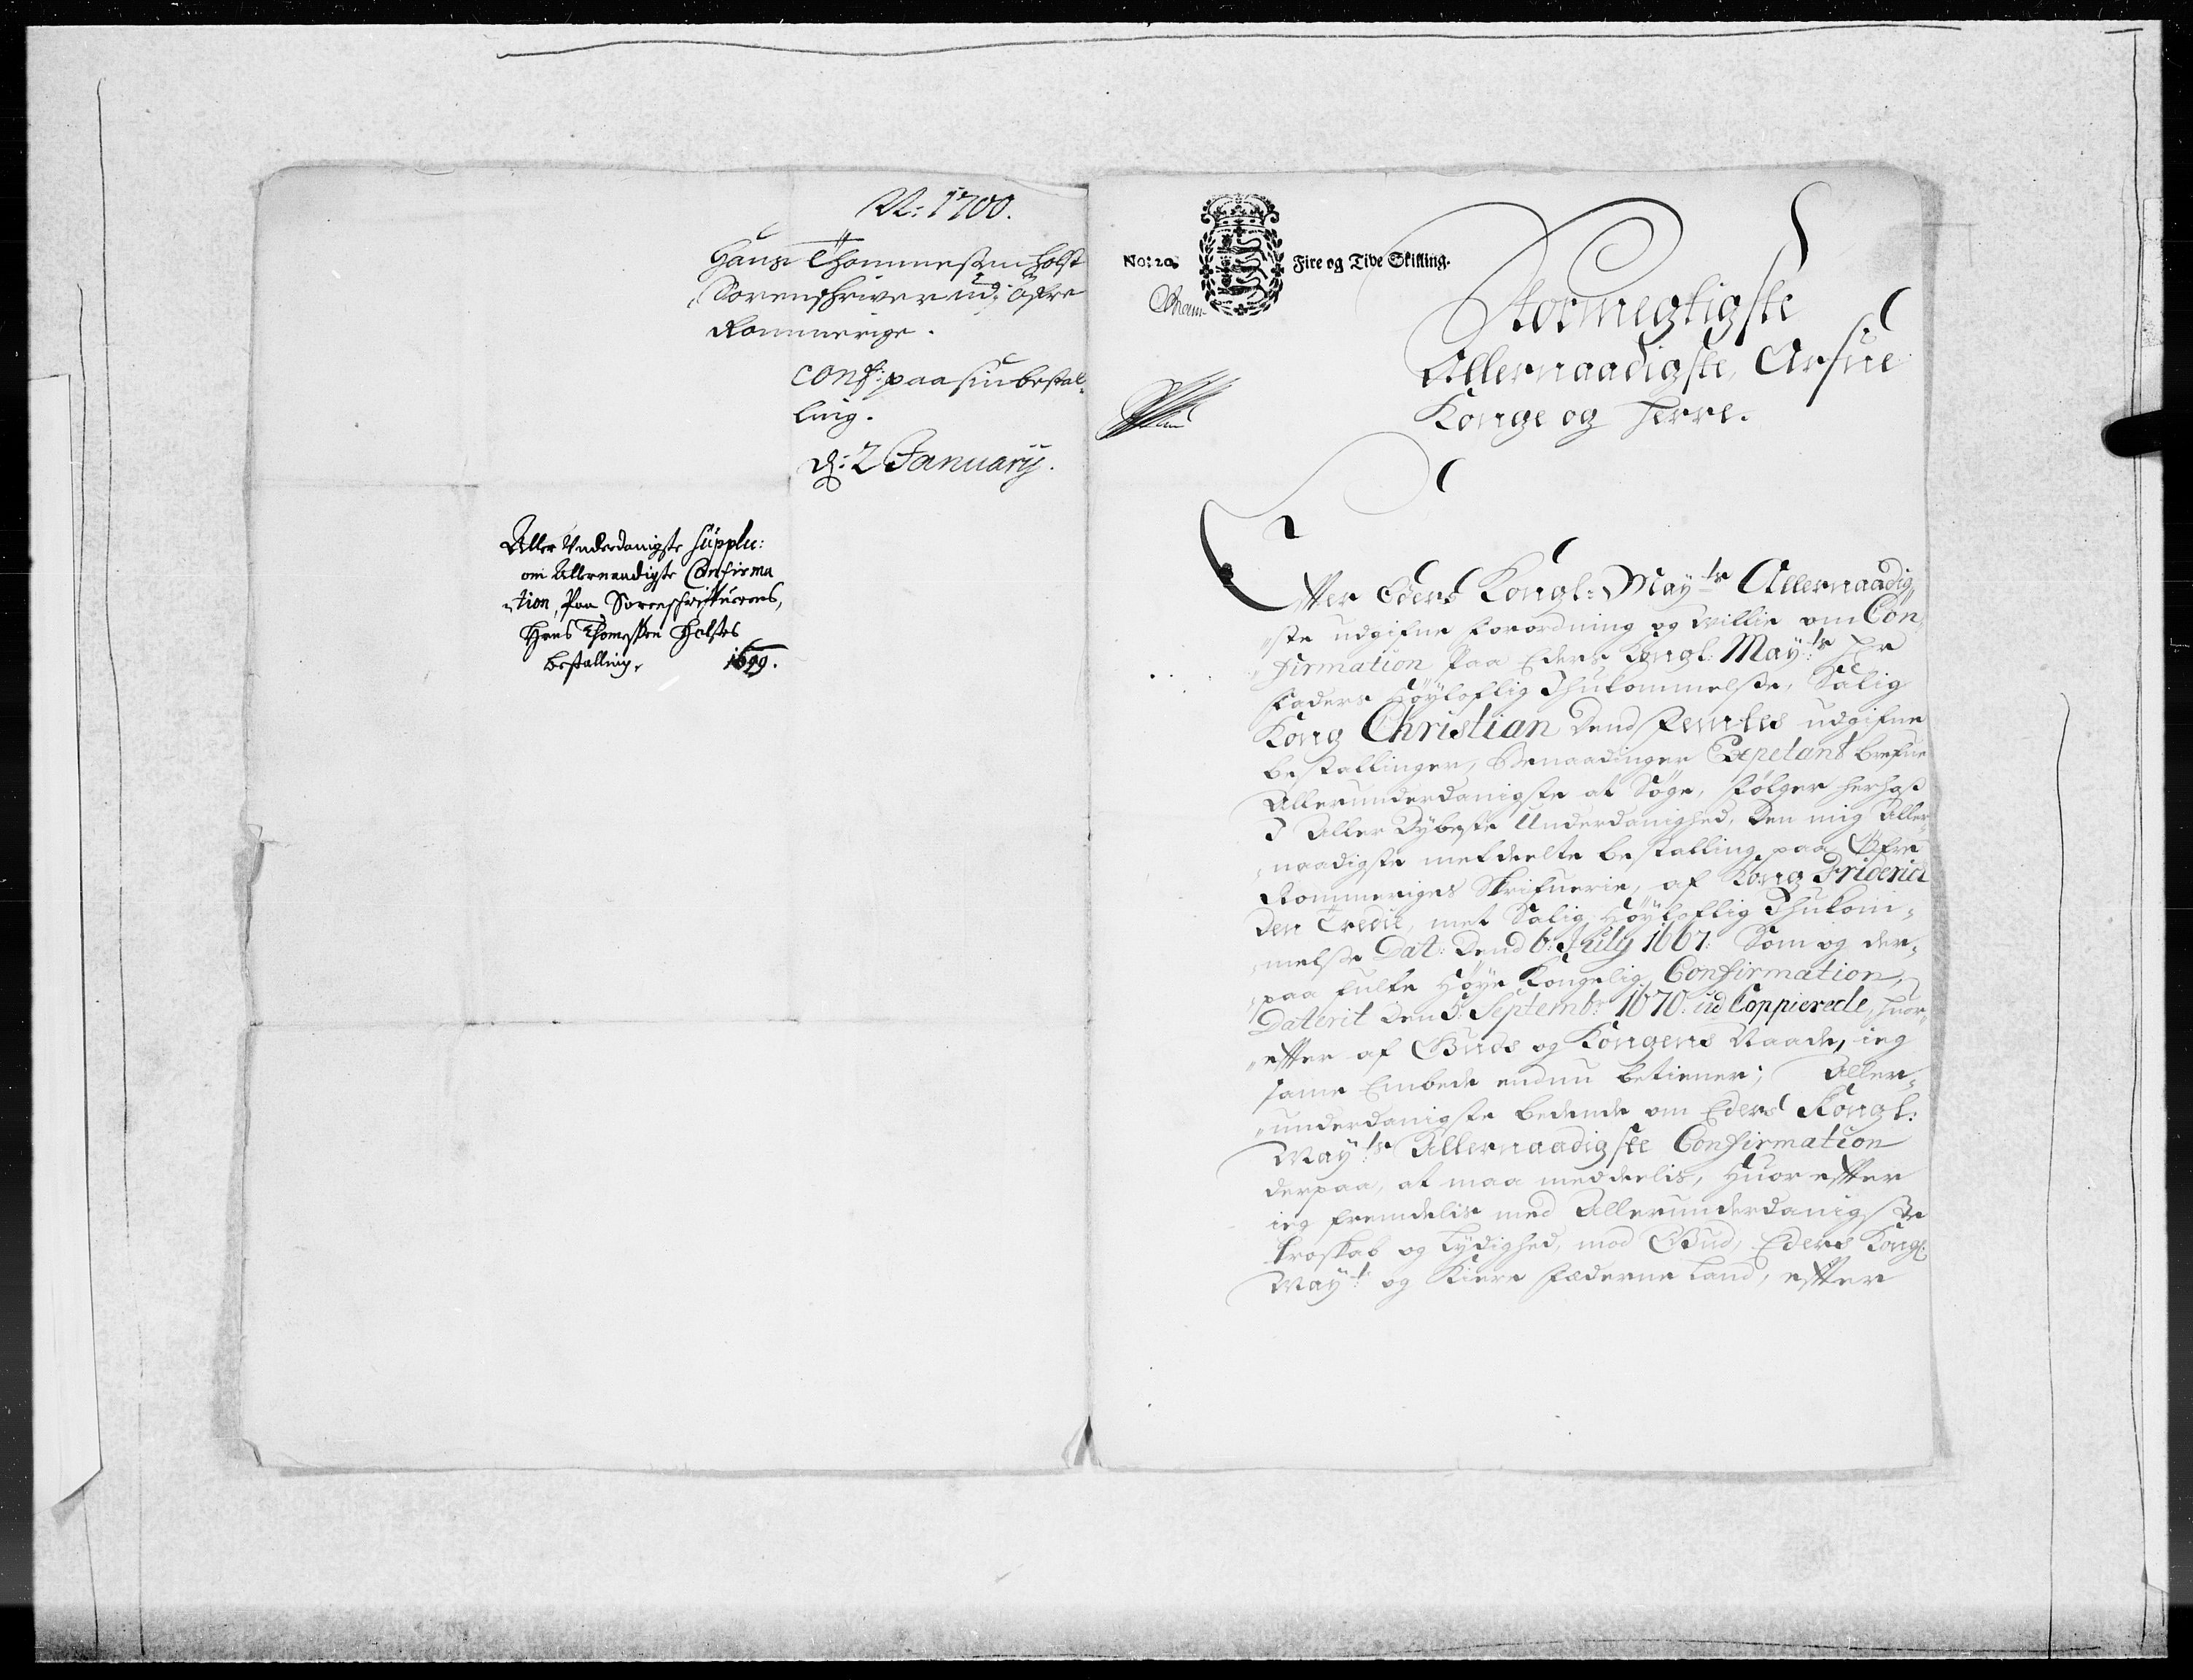 N: 1700.
Hans Thommesen Holst
Sorenschriver udj Öfre
Rommerige.
conf: paa sin bestal-
ling.
d: 2 January.
Aller Underdanigste Supplic:
om Allernaadigste Confirma
-tion, Paa Sorenschrifuerens,
Hans Thomessen Holstes
bestalling. 1699.
No: 20.
Fire og Tive Skilling.
Stormegtigste
Allernaadigste, Arfue
Konge og Herre.
Efter Eders Kongl: Mayts Allernaadig-
-ste udgifne forordning og Willie om Con-
firmation Paa Eders Kongl: Mayts Hr
Faders Höyloflig Ihukommelse, Salig
Kong Christian Dend Femtes udgifne
bestallinger, Benaadinger Expetant brefue
Allerunderdanigste at Söge, fölger herhos
I Aller Dybeste Underdanighed, Den mig Aller-
-naadigste meddeelte bestalling paa Öfre
Rommeriges Skrifuerie, af Kong Friderich
Den Tredie, met Salig Höyloflig Ihukom-
-melse Dat: Dend 6: July 1667: Som og der-
-paa fulte Höye Kongelig Confirmation,
Daterit Den 5: Septembr: 1670. ud Coppierede, huor-
-efter af Guds og Kongens Naade, ieg
samme Embede endnu betiener; Aller-
-underdanigste bedende om Eders Kongl:
Mayts Allernaadigste Confirmation
derpaa, at maa meddeelis, Huor efter
ieg fremdelis med Allerunderdanigste
troskab og Lydighed, mod Gud, Eders Kongl:
Mayt: og Kiere Fæderne Land, efter